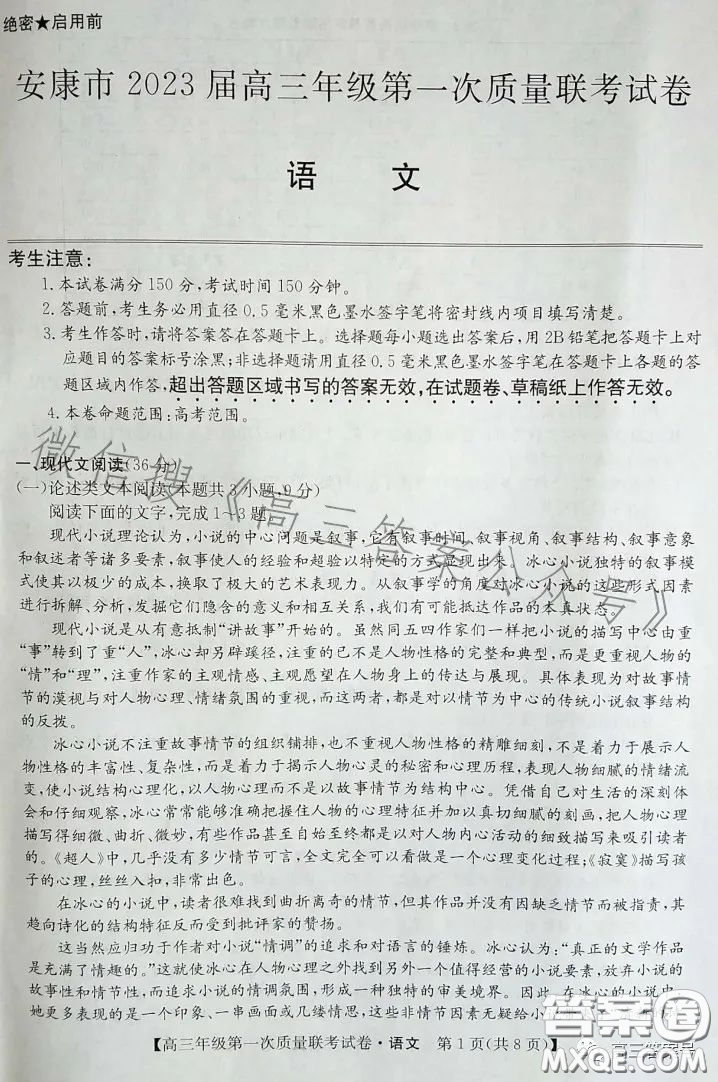 绝密★启用前
安康市2023届高三年级第一次质量联考试卷
语 文
考生注意:
1.本试卷满分150分,考试时间150分钟。
2.答题前,考生务必用直径0.5毫米黑色墨水签字笔将密封线内项目填写清楚。
3.考生作答时,请将答案答在答题卡上。选择题每小题选出答案后,用2B铅笔把答题卡上对
应题目的答案标号涂黑;非选择题请用直径0.5毫米黑色墨水签字笔在答题卡上各题的答
题区域内作答,超出答题区域书写的答案无效,在试题卷、草稿纸上作答无效。
4.本卷命题范围:高考范围。
一、现代文阅读(36分)
(一)论述类文本阅读(本题共3小题,9分)
阅读下面的文字,完成1~3题。
现代小说理论认为,小说的中心问题是叙事,它有叙事时间、叙事视角、叙事结构、叙事意象
和叙述者等诸多要素,叙事使人的经验和超验以特定的方式显现出来。冰心小说独特的叙事模
式使其以极少的成本,换取了极大的艺术表现力。从叙事学的角度对冰心小说的这些形式因素
进行拆解、分析,发掘它们隐含的意义和相互关系,我们有可能抵达作品的本真状态。
现代小说是从有意抵制“讲故事”开始的。虽然同五四作家们一样把小说的描写中心由重
“事”转到了重“人”,冰心却另辟蹊径,注重的已不是人物性格的完整和典型,而是更重视人物的
“情”和“理”,注重作家的主观情感、主观愿望在人物身上的传达与展现。具体表现为对故事情
节的漠视与对人物心理、情绪氛围的重视,而这两者,都是对以情节为中心的传统小说叙事结构
的反拨。
冰心小说不注重故事情节的组织铺排,也不重视人物性格的精雕细刻,不是着力于展示人
物性格的丰富性、复杂性,而是着力于揭示人物心灵的秘密和心理历程,表现人物细腻的情绪流
变,使小说结构心理化,以人物心理而不是以故事情节为结构中心。凭借自己对生活的深刻体
会和仔细观察,冰心常常能够准确把握住人物的心理特征并加以真切细腻的刻画,把人物心理
描写得细微、曲折、微妙,有些作品甚至自始至终都是以对人物内心活动的细致描写来吸引读者
的。《超人》中,几乎没有多少情节可言,全文完全可以看做是一个心理变化过程;《寂寞》描写孩
子的心理,丝丝入扣,非常出色。
在冰心的小说中,读者很难找到曲折离奇的情节,但其作品并没有因缺乏情节而被指责,其
趋向诗化的结构特征反而受到批评家的赞扬。
这当然应归功于作者对小说“情调”的追求和对语言的锤炼。冰心认为:“真正的文学作品
是充满了情趣的。”这就使冰心在人物心理之外找到另外一个值得经营的小说要素,放弃小说的
故事性和情节性,而追求小说的情调氛围,形成一种独特的审美境界。因此,在冰心的小说中,
她更多表现的是一个印象、一串画面或几缕情思,这些非情节性因素无疑给小说
【高三年级第一次质量联考试卷·语文 第1页(共8页)】
微信搜《高三答案公众号》
答案圈
MXQE.COM
高三答案号